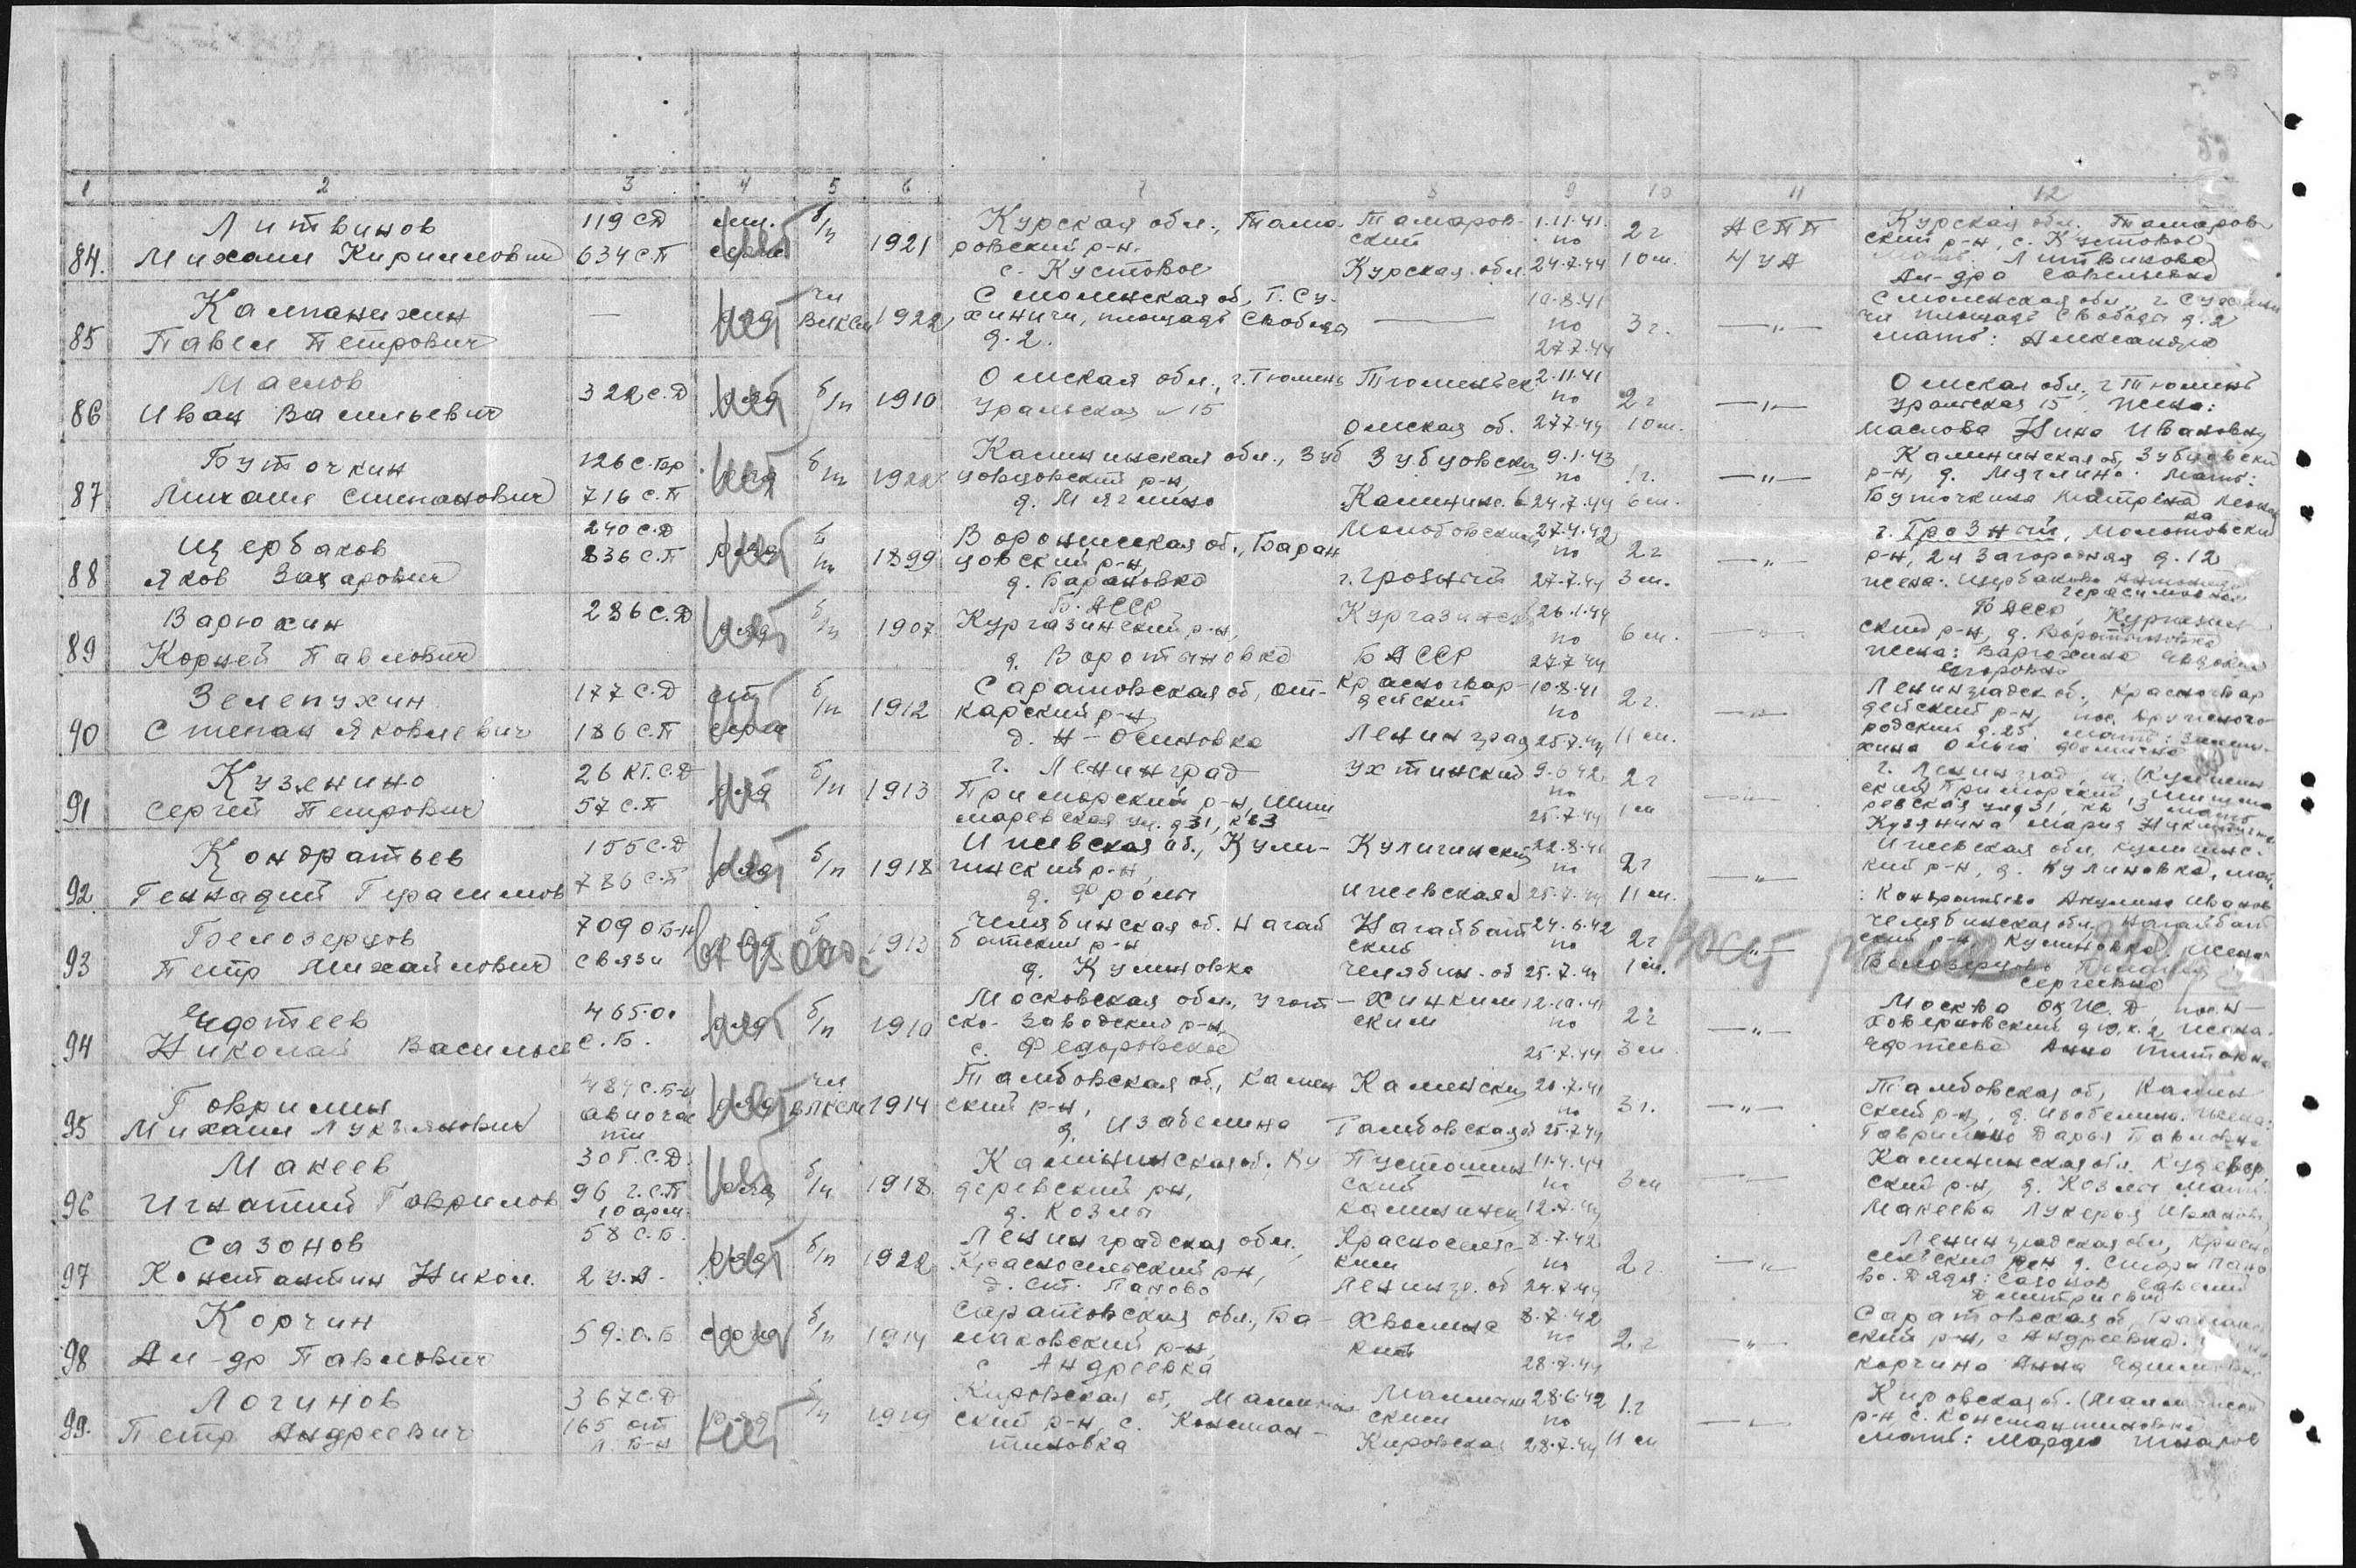 1 2 3 4 5 6 7 8 9 10 11 12
84. Литвинов Михаил Кириллович
119 СД 634 СП
мл. серж
б/п
1921
Курская обл., Тома-
ровский р-н.
с. Кустовое
Томаров-
ский
Курская обл
1.11.41 по 24.7.44
2 г 10 м.
АСПП 4 УА
Курская обл. Томаров
ский р-н, с. Кустовое
мать Литвинова
Ал-дра Савельевна
85 Калпанихин Павел Петрович
—
ряд
чл ВЛКСМ
1922
Смоленская об, г. Су-
хиничи, площадь Свободы
д. 2.
—
10.8.41 по 27.7.44
3 г.
— " —
Смоленская обл., г. Сухини
чи площадь Свободы д. 2
мать: Александра
86 Маслов Иван Васильевич
322 с.Д
ряд
б/п
1910
Омская обл., г. Тюмень
Уральская 15
Тюменьск
Омская об.
2.11.41 по 27.7.44
2 г 10 м.
— " —
Омская обл, г Тюмень
Уральская 15, жена:
Маслова Нина Ивановну
87 Буточкин Михаил Степанович
126 с.бр 716 с.П
ряд
б/п
1922
Калининская обл., Зуб
цовский р-н,
д. Мяглино
Зубцовски
Калининс.
9.1.43 по 24.7.44
1 г. 6 м.
— " —
Калининская об, Зубцовски
р-н, д. Мяглино. Мать:
Буточкина Матрена
88 Щербаков Яков Захарович
240 с.Д 836 с.П
ряд
б/п
1899
Воронежская об., Баран
цовский р-н,
д. Барановка
г. Грозный
27.4.42 по 27.7.44
2 г 3 м.
— " —
г. Грозный, Молотовский
р-н, 2я Загородная д. 12
жена: Щербакова
Герасимовна
89 Варюхин Корней Павлович
286 с.Д
ряд
б/п
1907
Б. АССР
Кургазинский р-н,
д. Воротяновка
Кургазинск
БАССР
26.1.44 по 27.7.44
6 м.
— " —
БАССР, Кургазин
ский р-н, д. Воротяновка
жена: Варюхина
Егоровна
90 Зелепухин Степан Яковлевич
177 с.Д 186 с.П
ст серж
б/п
1912
Саратовская об, Ат-
карский р-н,
д. Н-Осиновка
Красногвар-
дейский
Ленинград
10.8.41 по 25.7.44
2 г. 11 м.
— " —
Ленинградск об., Красногвар
дейский р-н, пос.
родский д. 25. мать:
хина Ольга
91 Кузенино Сергей Петрович
26 КГ.СД 57 с.П
ряд
б/п
1913
г. Ленинград
Приморский р-н, Шиш
маревская ул. д 31, к 63
Ухтинский
9.6.42 по 25.7.44
2 г 1 м
— " —
г. Ленинград,
ский Приморский Шишма
ревская ул д 31, кв 13 мать
Кузянина Мария
92. Кондратьев Геннадий Герасимов
155 с.Д 786 с.П
ряд
б/п
1918
Ижевская об., Кули-
гинский р-н,
д. Фролы
Кулигинский
Ижевская
22.8.41 по 25.7.44
2 г 11 м.
— " —
Ижевская обл, Кулигинс-
кий р-н, д. Кулиновка, мать
: Кондратьева Акулина Иванов
93 Белозерцов Петр Михайлович
709 О Б-Н связи
1913
Челябинская об. Нагай
батский р-н
д. Кулиновка
Нагайбат
ский
Челябин. об
24.6.42 по 25.7.44
2 г 1 м.
— " —
Челябинская обл. Нагайбат
ский р-н, Кулиновка. Жена
Белозерцова
Сергеевна
94 Ефтеев Николай Василье
465 о. с.Б.
ряд
б/п
1910
Московская обл., Угот-
ско-Заводский р-н,
с. Федоровское
Химким
ский
12.10.41 по 25.7.44
2 г 3 м
— " —
Москва Ок Ж.Д, пос. Н-
Ховериновский д 10, к. 2, жена.
Ефтеева Анна Титовна
95 Гаврилин Михаил Лукьянович
484 с.Б-н авиачас
ти
ряд
чл ВЛКСМ
1914
Тамбовская об., Камен
ский р-н,
д. Изабелино
Каменский
Тамбовская об
20.7.41 по 25.7.44
3 г.
— " —
Тамбовская об, Камен
ский р-н, д. Изобелино. Жена:
Гаврилина Дарья Павловна
96 Макеев Игнатий Гаврилов
30 Г.С.Д. 96 г.с.П 10 арм.
ряд
б/п
1918
Калининская об. Ку
деревский рн,
д. Козлы
Пустошин
ский
Калининск
11.4.44 по 12.7.44
3 м
— " —
Калининская обл. Кудевер
ский р-н, д. Козлы Мать
Макеева Лукерья Иванов
97 Сазонов Константин Никол.
58 с.Б. 2 У.А.
ряд
б/п
1922
Ленинградская обл.,
Красносельский р-н,
д. Ст. Паново
Красносельс
кий
Ленингр. об
8.7.42 по 24.7.44
2 г.
— " —
Ленинградская обл, Красно
сельский рен д. Стар Пано
во. Дядя: Сазонов Савелий
Дмитриевич
98 Корчин Ал-др Павлович
59. О.Б
б/п
1914
Саратовская обл., Ба-
лаковский р-н,
с Андреевка
Хвалынс
кий
8.7.42 по 28.7.44
2 г
— " —
Саратовская об,
ский р-н, с Андреевка.
Корчина Анна
99. Логинов Петр Андреевич
367 с.Д 165 от л. Б-Н
ряд
б/п
1919
Кировская об, Малмыж
ский р-н, с. Констан-
тиновка
Малмыж
ский
Кировская
28.6.42 по 28.7.44
1 г 11 м
— " —
Кировская об. (Малмыжский
р-н, с. Константиновка
мать: Марфа